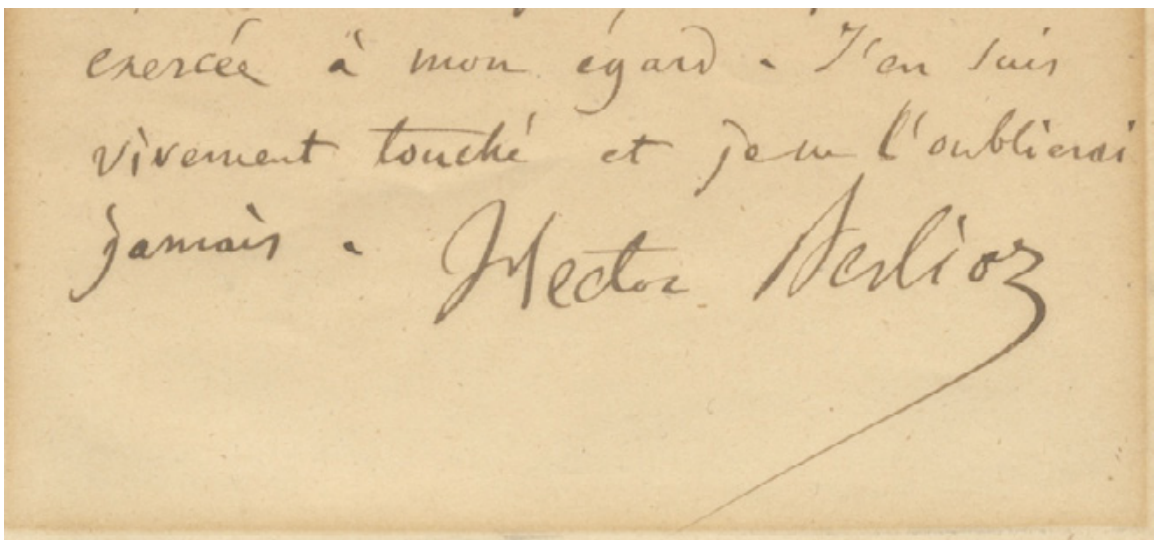 exercée à mon égard. J'en suis
vivement touché et je ne l'oublierai
jamais.
Hector Berlioz